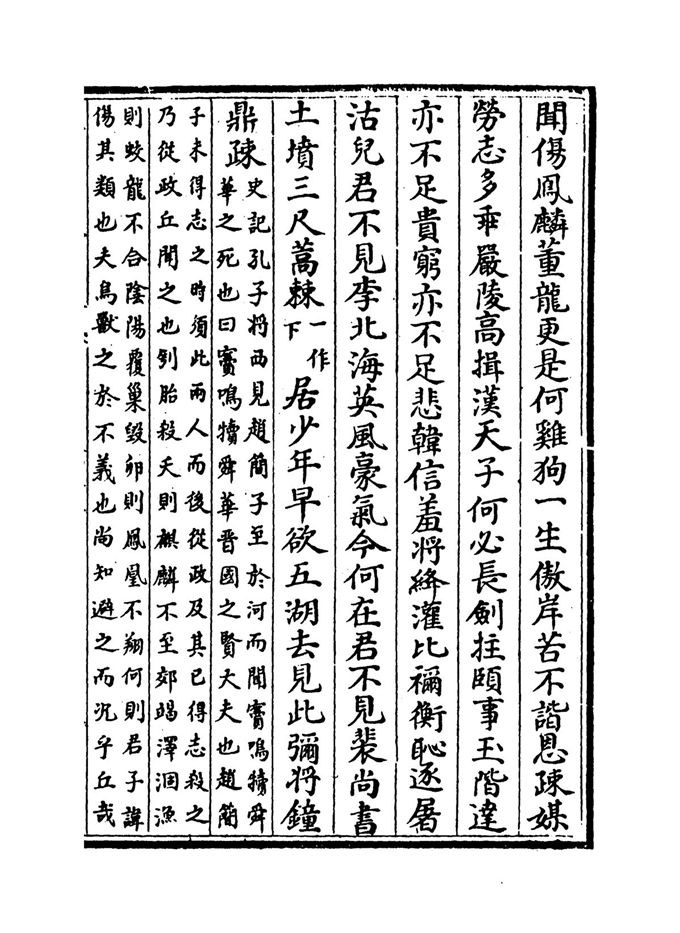 聞傷鳳麟董龍更是何雞狗一生傲岸苦不諧恩疎媒
勞志多乖嚴陵高揖漢天子何必長劍拄頤事玉階達
亦不足貴窮亦不足悲韓信羞將絳灌比禰衡恥逐屠
沽兒君不見李北海英風豪氣今何在君不見裴尚書
土墳三尺蒿棘
一作
下
居少年早欲五湖去見此彌將鐘
鼎疎
史記孔子將西見趙簡子至於河而聞竇鳴犢舜
華之死也曰竇鳴犢舜華晉國之賢大夫也趙簡
子未得志之時須此兩人而後從政及其已得志殺之
乃從政丘聞之也刳胎殺夭則麒麟不至郊竭澤涸漁
則蛟龍不合陰陽覆巢毀卵則鳳凰不翔何則君子諱
傷其類也夫鳥獸之於不義也尚知避之而况乎丘哉